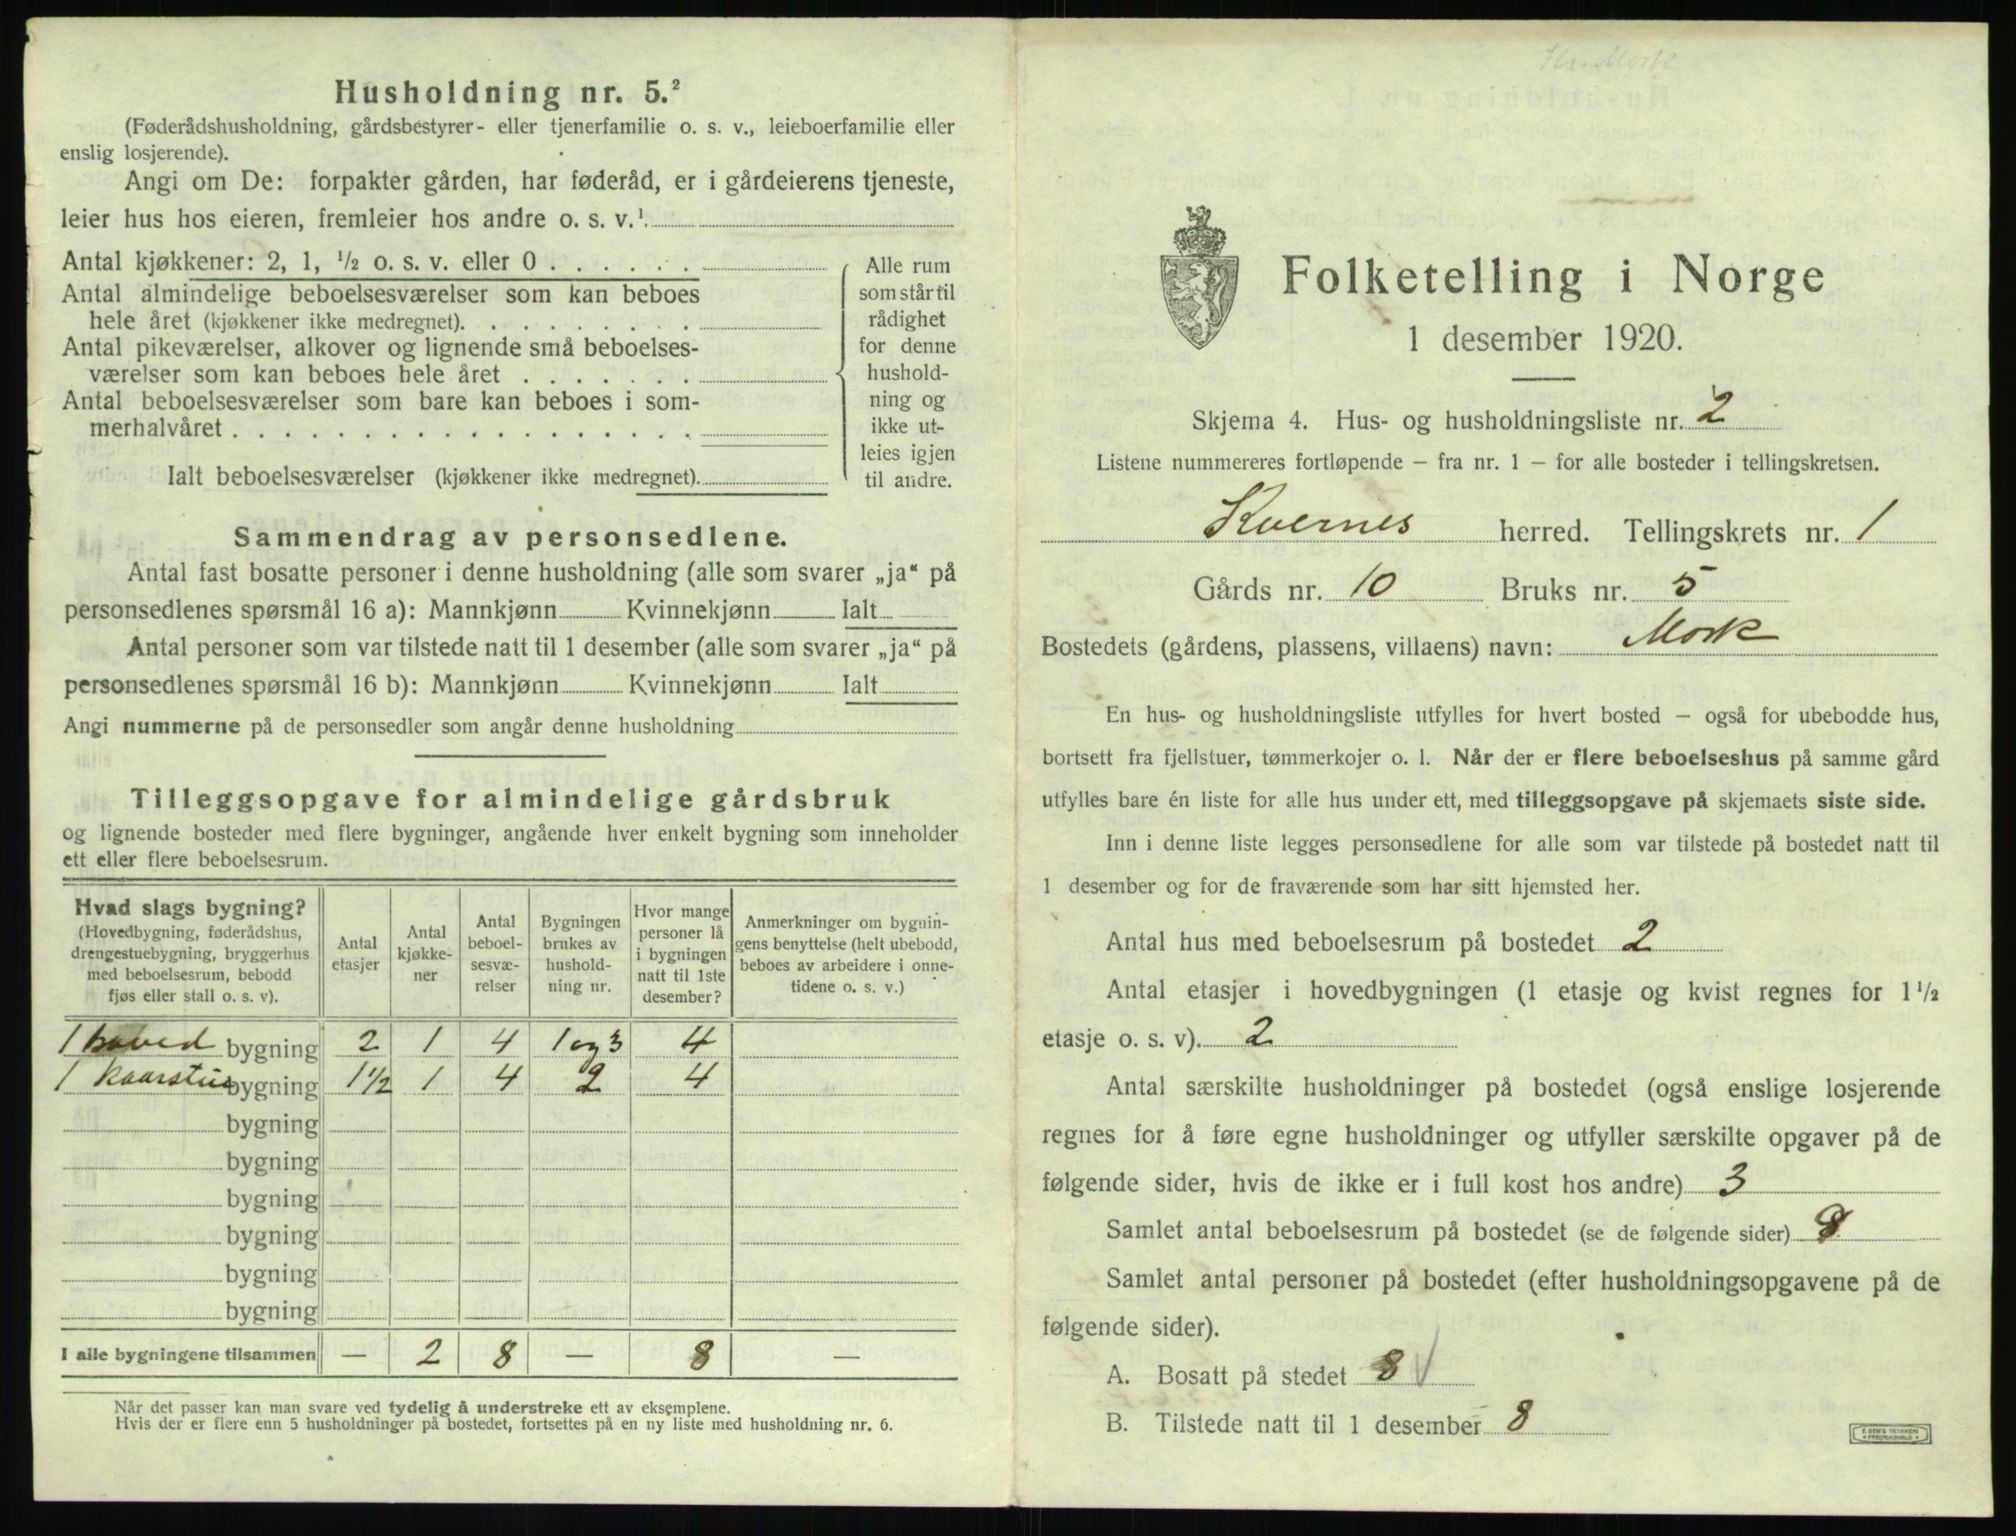 Husholdning nr. 5.²
(Føderådshusholdning, gårdsbestyrer- eller tjenerfamilie o. s. v., leieboerfamilie eller
enslig losjerende).
Angi om De: forpakter gården, har føderåd, er i gårdeierens tjeneste,
leier hus hos eieren, fremleier hos andre o. s. v.¹
Antal kjøkkener: 2, 1, ½ o. s. v. eller 0 . . . . . .
Antal almindelige beboelsesværelser som kan beboes
hele året (kjøkkener ikke medregnet). . . . . . . . .
Antal pikeværelser, alkover og lignende små beboelses-
værelser som kan beboes hele året . . . . . . .
Antal beboelsesværelser som bare kan beboes i som-
merhalvåret . . . . . . . . . . . . . . . . . .
Ialt beboelsesværelser (kjøkkener ikke medregnet).
Alle rum
som står til
rådighet
for denne
hushold-
ning og
ikke ut-
leies igjen
til andre.
Sammendrag av personsedlene.
Antal fast bosatte personer i denne husholdning (alle som svarer „ja“ på
personsedlenes spørsmål 16 a): Mannkjønn Kvinnekjønn Ialt
Antal personer som var tilstede natt til 1 desember (alle som svarer „ja“ på
personsedlenes spørsmål 16 b): Mannkjønn Kvinnekjønn Ialt
Angi nummerne på de personsedler som angår denne husholdning
Tilleggsopgave for almindelige gårdsbruk
og lignende bosteder med flere bygninger, angående hver enkelt bygning som inneholder
ett eller flere beboelsesrum.
Hvad slags bygning?
(Hovedbygning, føderådshus,
drengestuebygning, bryggerhus
med beboelsesrum, bebodd
fjøs eller stall o. s. v).
Antal
etasjer
Antal
kjøkke-
ner
Antal
beboel-
sesvæ-
relser
Bygningen
brukes av
hushold-
ning nr.
Hvor mange
personer lå
i bygningen
natt til 1ste
desember?
Anmerkninger om bygnin-
gens benyttelse (helt ubebodd,
beboes av arbeidere i onne-
tidene o. s. v.)
1 hoved bygning 2 1 4 1 og 3 4
1 kaarstue bygning 1½ 1 4 2 4
bygning
bygning
bygning
bygning
bygning
bygning
I alle bygningene tilsammen — 2 8 — 8 —
Når det passer kan man svare ved tydelig å understreke ett av eksemplene.
Hvis der er flere enn 5 husholdninger på bostedet, fortsettes på en ny liste med husholdning nr. 6.
Folketelling i Norge
1 desember 1920.
Skjema 4. Hus- og husholdningsliste nr. 2
Listene nummereres fortløpende – fra nr. 1 – for alle bosteder i tellingskretsen.
Kvernes herred. Tellingskrets nr. 1
Gårds nr. 10 Bruks nr. 5
Bostedets (gårdens, plassens, villaens) navn: Mork
En hus- og husholdningsliste utfylles for hvert bosted – også for ubebodde hus,
bortsett fra fjellstuer, tømmerkojer o. l. Når der er flere beboelseshus på samme gård
utfylles bare én liste for alle hus under ett, med tilleggsopgave på skjemaets siste side.
Inn i denne liste legges personsedlene for alle som var tilstede på bostedet natt til
1 desember og for de fraværende som har sitt hjemsted her.
Antal hus med beboelsesrum på bostedet 2
Antal etasjer i hovedbygningen (1 etasje og kvist regnes for 1½
etasje o. s. v). 2
Antal særskilte husholdninger på bostedet (også enslige losjerende
regnes for å føre egne husholdninger og utfyller særskilte opgaver på de
følgende sider, hvis de ikke er i full kost hos andre) 3
Samlet antal beboelsesrum på bostedet (se de følgende sider) 8
Samlet antal personer på bostedet (efter husholdningsopgavene på de
følgende sider).
A. Bosatt på stedet 8
B. Tilstede natt til 1 desember 8